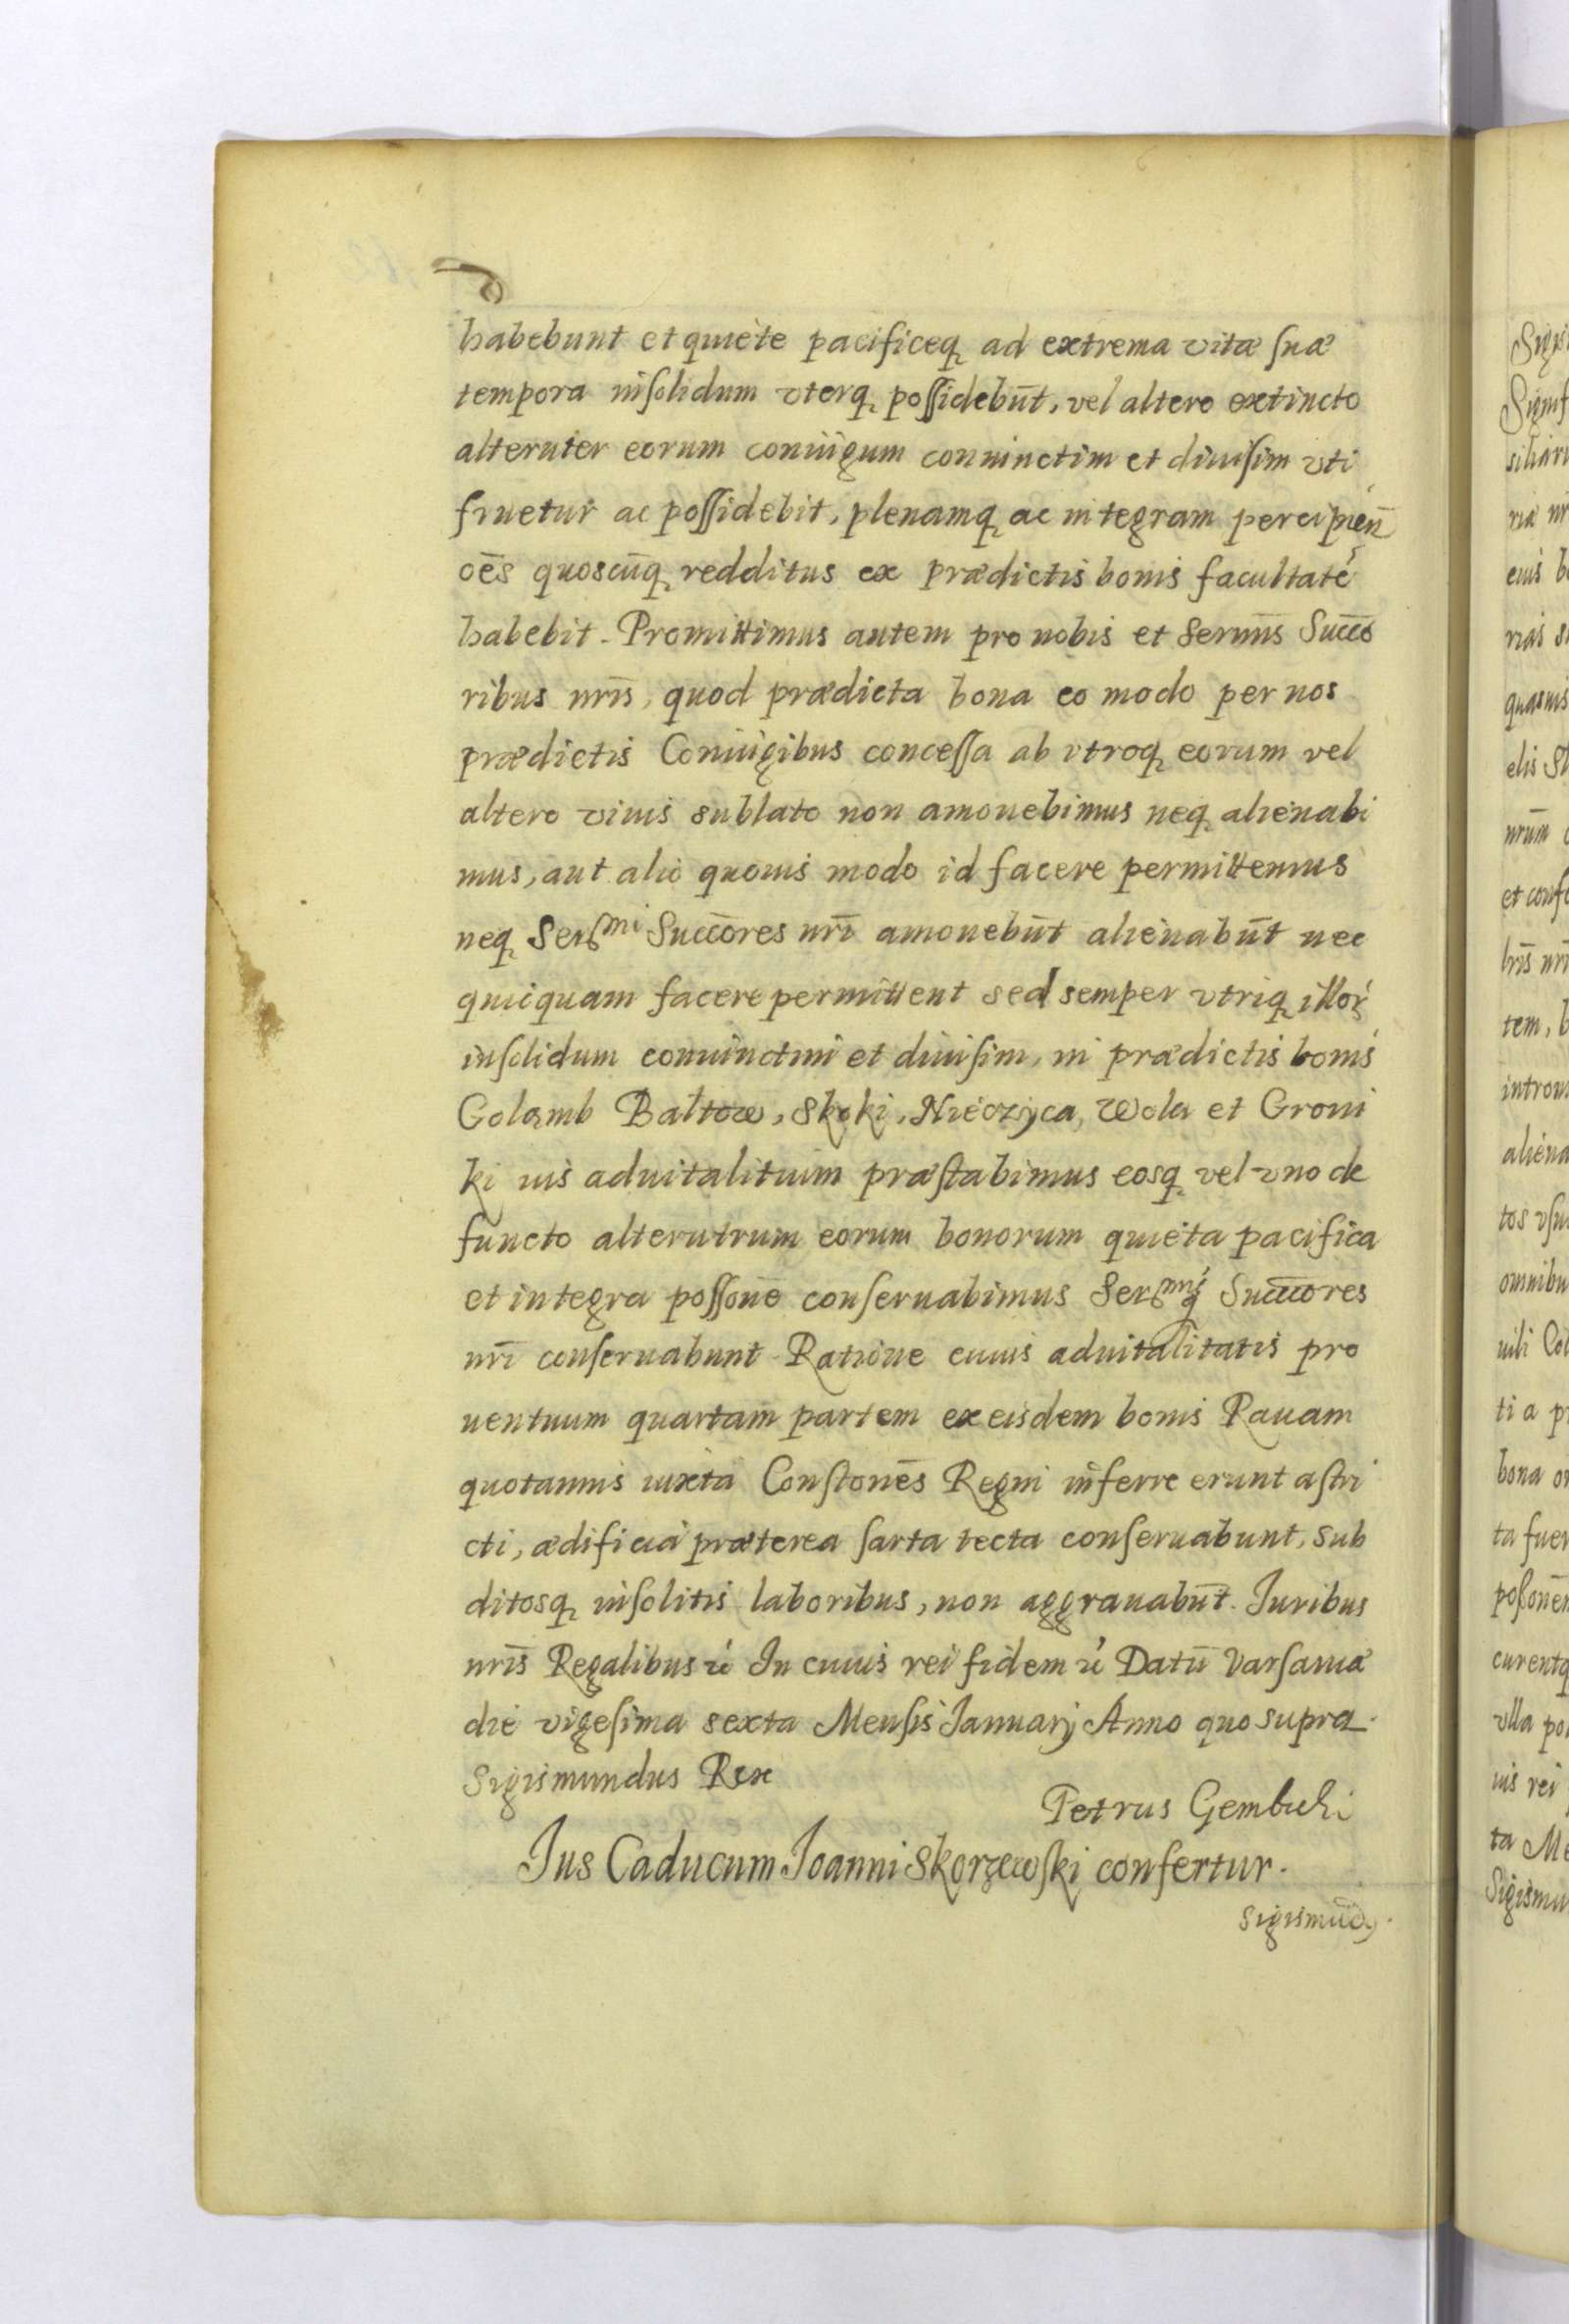 habebunt et quiete pacificeq ad extrema vitæ suæ
tempora insolidum vterq possidebūt, vel altero extincto
alteruter eorum coniugum coniunctim et diuisim vti
fruetur ac possidebit, plenamq ac integram percipien̄
oēs quoscūq redditus ex prædictis bonis facultatē
habebit. Promittimus autem pro nobis et Sermīs Succō
ribus nrīs, quod prædicta bona eo modo per nos
prædictis Coniugibus concessa ab vtroq eorum vel
altero viuis sublato non amouebimus neq alienabi
mus, aut alio quouis modo id facere permittemus
neq Sermi Succōres nrī amouebūt alienabūt nec
quicquam facere permittent sed semper vtriq illoꝝ
insolidum coniunctim et diuisim, in prædictis bonis
Golamb Baltow, Skoki, Nieczyca, Wola et Groni
ki ius aduitalitium præstabimus eosq vel vno de
functo alterutrum eorum bonorum quieta pacifica
et integra possōne conseruabimus Sermiq Succcores
nrī conseruabunt. Ratione cuius aduitalitatis pro
uentuum quartam partem ex eisdem bonis Rauam
quotannis iuxta Constōnes Regni inferre erunt astri
cti, ædificia præterea sarta tecta conseruabunt, sub
ditosq insolitis laboribus, non aggrauabūt. Iuribus
nrīs Regalibus &c In cuius rei fidem &c Datū Varsauiæ
die vigesima sexta Mensis Ianuarij Anno quo supra.
Sigismundus Rex
Petrus Gembicki
Ius Caducum Ioanni Skorzewski confertur.
Sigismūdꝰ.
Sigis
Sigmf
siliari
riæ nr
eius b
rias s
quasuis
elis St
nrūm
et conf
brīs nrī
tem, b
introm
aliena
tos vsu
omnibu
uili Co
ti a p
bona o
ta fuer
possōnē
curentq
vlla po
uis rei
ta Me
Sigismu